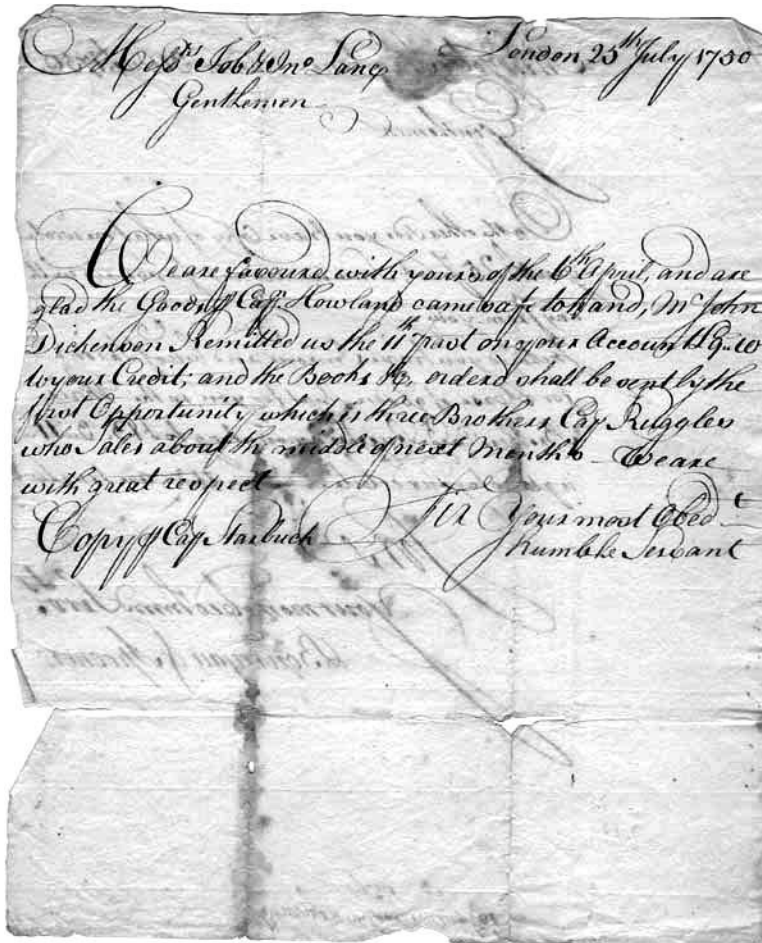 Mess.rs Job & Jno Lane London 25th July 1750
Gentlemen
We are favoured with yours of the 6th April, and are
glad the Goods p Capt Howland came safe to hand, Mr John
Dickenson Remitted us the 11th past on your Account
to your Credit; and the Books &c. orderd shall be sent by the
first Opportunity which is three Brothers Cap Ruggles
who Sales about the middle of next Month We are
with great respect
Sir Your most Obedt
Humble Servant
Copy p Cap Starbuck